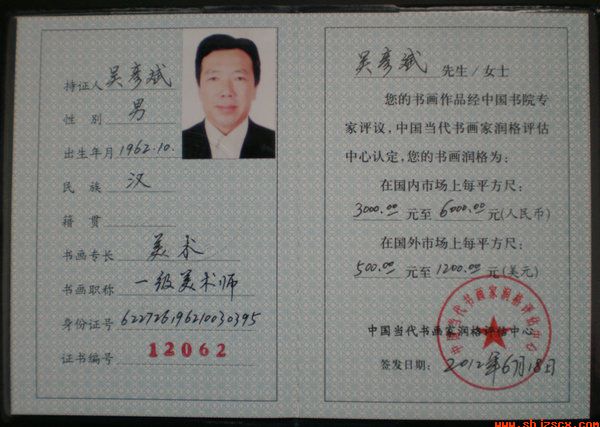 持证人 吴彦斌
性 别 男
出生年月 1962.10.
民 族 汉
籍 贯
书画专长 美术
书画职称 一级美术师
身份证号 622726196210030395
证书编号 12062
吴彦斌 先生/女士
您的书画作品经中国书院专
家评议,中国当代书画家润格评估
中心认定,您的书画润格为:
在国内市场上每平方尺:
3000.00 元至 6000.00 元(人民币)
在国外市场上每平方尺:
500.00 元至 1200.00 元(美元)
中国当代书画家润格评估中心
中国当代书画家润格评估中心
签发日期: 2012年6月18日
www.shjzscx.com